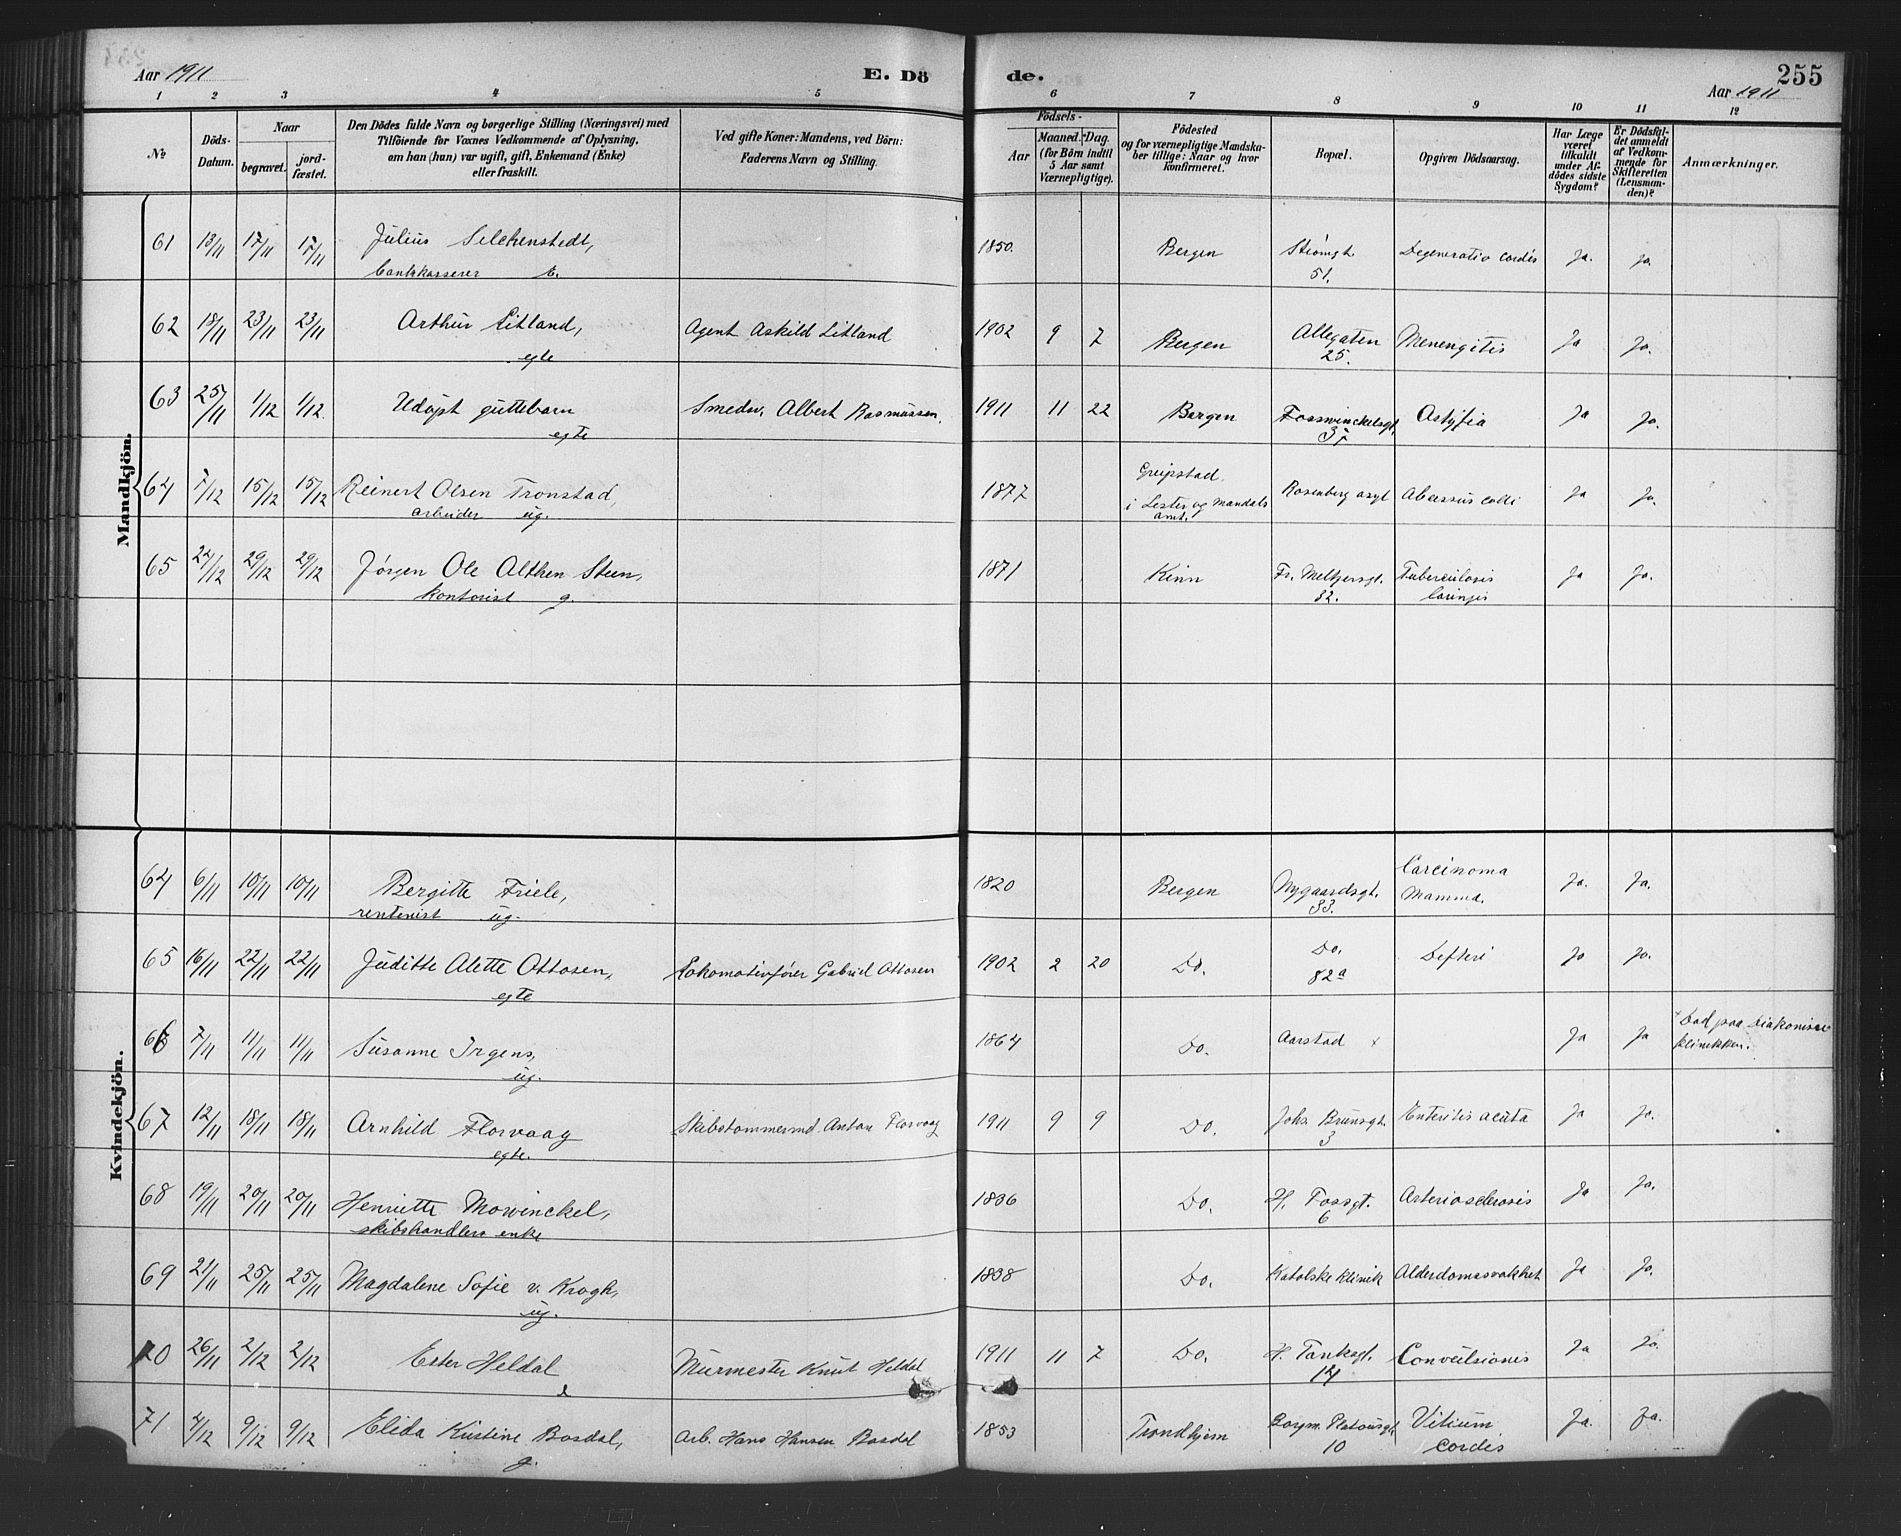 Aar 1911 E. Dö de. 255
Aar 1911
1 2 3 4 5 6 7 8 9 10 11 12
No
Döds-Datum.
Naar
begravet.
jordfæstet.
Den Dödes fulde Navn og borgerlige Stilling (Næringsvei) med
Tilföiende for Voxnes Vedkommende af Oplysning,
om han (hun) var ugift, gift, Enkemand (Enke)
eller fraskilt.
Ved gifte Koner: Mandens, ved Börn:
Faderens Navn og Stilling.
Födsels-
Aar
Maaned. Dag.
(for Börn indtil
5 Aar samt
Værnepligtige).
Födested
og for værnepligtige Mandskaber tillige: Naar og hvor
konfirmeret.
Bopæl.
Opgiven Dödsaarsag.
Har Læge
været
tilkaldt
under Afdödes sidste
Sygdom?
Er Dödsfaldet anmeldt
af Vedkommende for
Skifteretten
(Lensmanden)?
Anmærkninger.
Mandkjön.
61 13/11 17/11 17/11 Julius Selchenstedt, 1850. Bergen Strömgt. Degeneratio cordis Ja. Ja.
bankkasserer E. 51.
62 18/11 23/11 23/11 Arthur Litland, Agent Askild Litland 1902 9 7 Bergen Allegaten Menengitis Ja Ja.
egte 25.
63 25/11 1/12 1/12. Udöpt guttebarn Smedsv. Albert Rasmussen. 1911 11 22 Bergen Fosswinckelsgt. Astyfia Ja Ja.
egte 37
64 7/12 15/12 15/12 Reinert Olsen Tronstad, 1877 Greipstad Rosenberg asyl Abcessus colli Ja Ja.
arbeider ug. i Lester og Mandals
amt.
65 24/12 29/12 29/12 Jørgen Ole Althen Steen, 1871 Kinn Fr. Meltzersgt. Tuberculosis Ja Ja.
Kontorist g. 82. laringis
Kvindekjön.
64 6/11 10/11 10/11 Bergitte Friele, 1820 Bergen Nygaardsgt. Carcinoma Ja. Ja.
rentenist ug. 33. Mamma.
65 16/11 22/11 22/11 Juditte Alette Ottosen, Lokomotivfører Gabriel Ottosen 1902 2 20 Do. Do. Defteri Ja Ja.
egte 82a
66 7/11 11/11 11/11 Susanne Irgens, 1864 Do. Aarstad x Ja Ja x Död paa Diakonisse
ug. klinikken.
67 12/11 18/11 18/11 Arnhild Florvaag Skibstømmermd Anton Florvaag 1911 9 9 Do. Johs. Brunsgt. Enteritis acuta Ja Ja.
egte. 3
68 19/11 20/11 20/11 Henriette Mowinckel, 1836 Do. H. Fossgt. Arteriosclerosis Ja Ja.
skibshandlers enke 6
69 21/11 25/11 25/11 Magdalene Sofie v. Krogh, 1838 Do. Katolske klinik Alderdomssvakhet Ja Ja.
ug.
70 26/11 2/12 2/12 Ester Heldal Murmester Knut Heldal 1911 11 7 Do. H. Tanksgt. Convulsionis Ja Ja.
e 14
71 4/12 9/12 9/12 Elida Kristine Bosdal, Arb. Hans Hansen Bosdal 1853 Trondhjem Borgm. Platousgt Vitium Ja. Ja.
g. 10 cordis